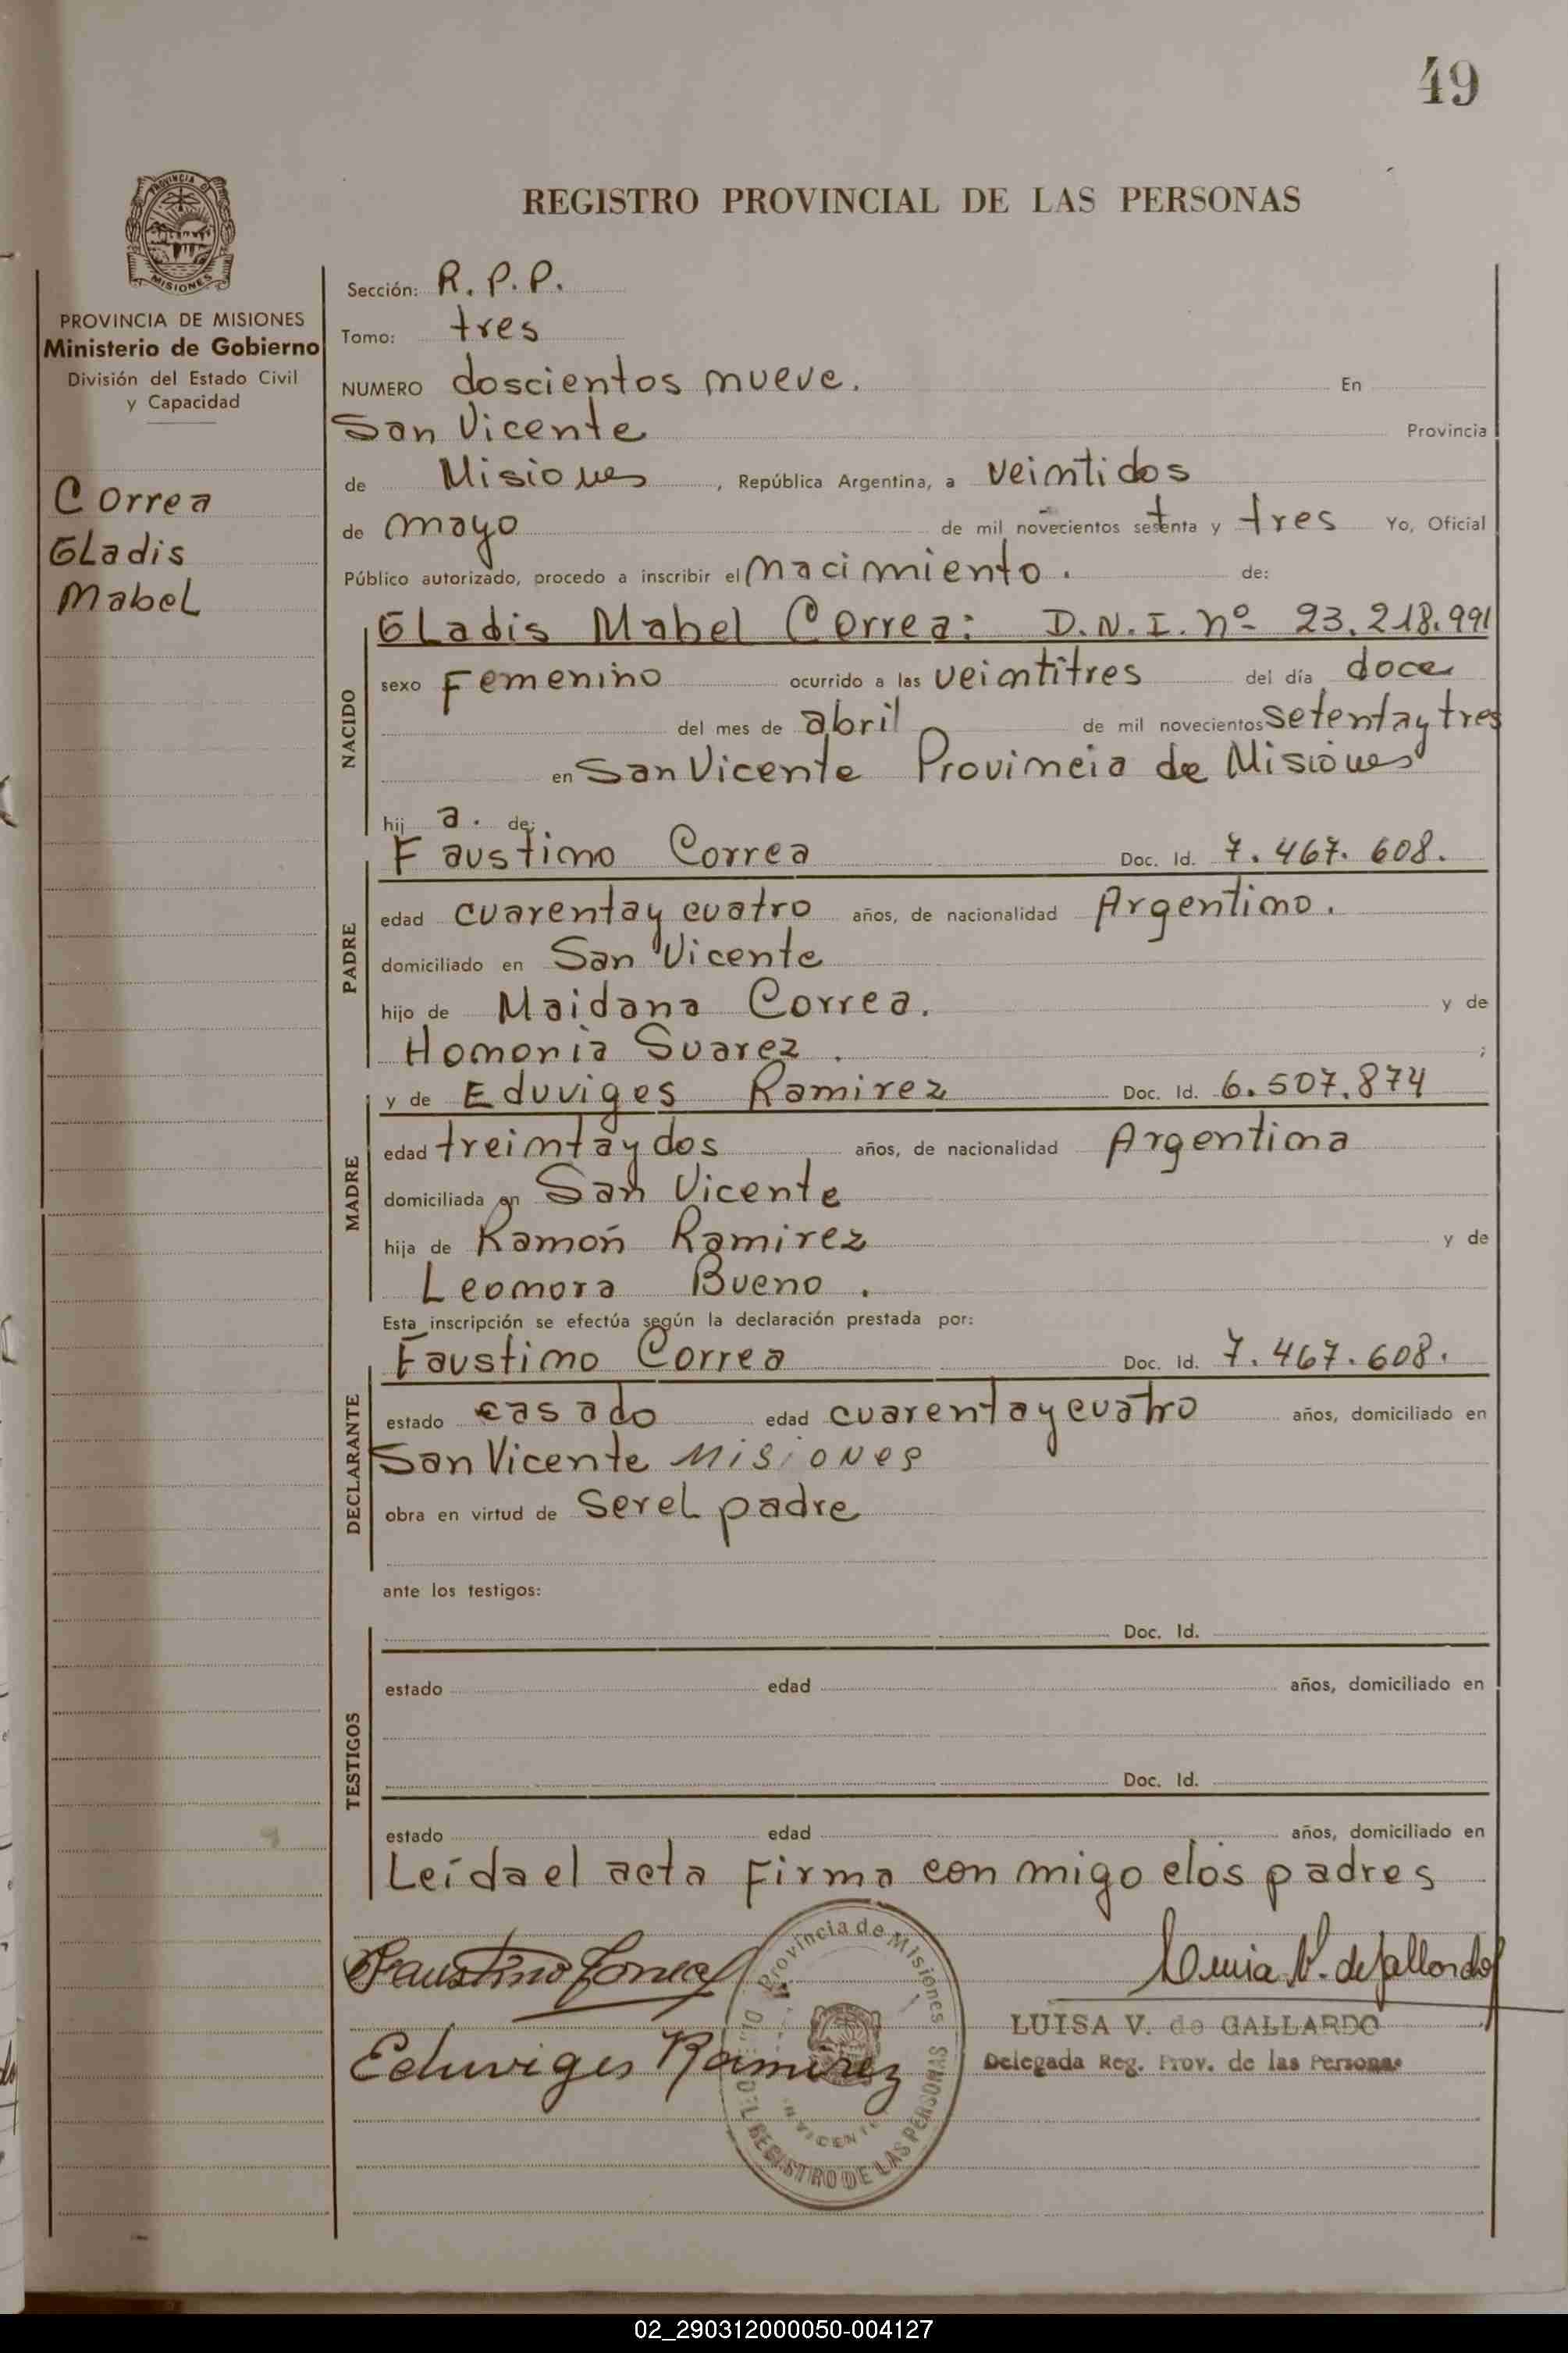 49
PROVINCIA DE
MISIONES
REGISTRO PROVINCIAL DE LAS PERSONAS
PROVINCIA DE MISIONES
Ministerio de Gobierno
División del Estado Civil
y Capacidad
Correa
Gladis
Mabel
Sección: R. P. P.
Tomo: tres
NUMERO doscientos nueve. En
San Vicente Provincia
de Misiones, República Argentina, a veintidos
de mayo de mil novecientos setenta y tres Yo, Oficial
Público autorizado, procedo a inscribir el nacimiento. de:
NACIDO
Gladis Mabel Correa: D.N.I. nº 23.218.991
sexo Femenino ocurrido a las veintitres del día doce
del mes de abril de mil novecientos setenta y tres
en San Vicente Provincia de Misiones
hij a. de:
PADRE
Faustino Correa Doc. Id. 7.467.608.
edad cuarenta y cuatro años, de nacionalidad Argentino.
domiciliado en San Vicente
hijo de Maidana Correa. y de
Homonia Suarez. ;
MADRE
y de Eduviges Ramirez Doc. Id. 6.507.874
edad treinta y dos años, de nacionalidad Argentina
domiciliada en San Vicente
hija de Ramón Ramirez y de
Leonora Bueno.
Esta inscripción se efectúa según la declaración prestada por:
DECLARANTE
Faustino Correa Doc. Id. 7.467.608.
estado casado edad cuarenta y cuatro años, domiciliado en
San Vicente Misiones
obra en virtud de ser el padre
ante los testigos:
TESTIGOS
Doc. Id.
estado edad años, domiciliado en
Doc. Id.
estado edad años, domiciliado en
Leída el acta firma con migo elos padres
Faustino Correa
Eduviges Ramirez
Provincia de Misiones
DEL REGISTRO DE LAS PERSONAS
VICENTE
Luisa V. de Gallardo
LUISA V. de GALLARDO
Delegada Reg. Prov. de las Personas
02_290312000050-004127